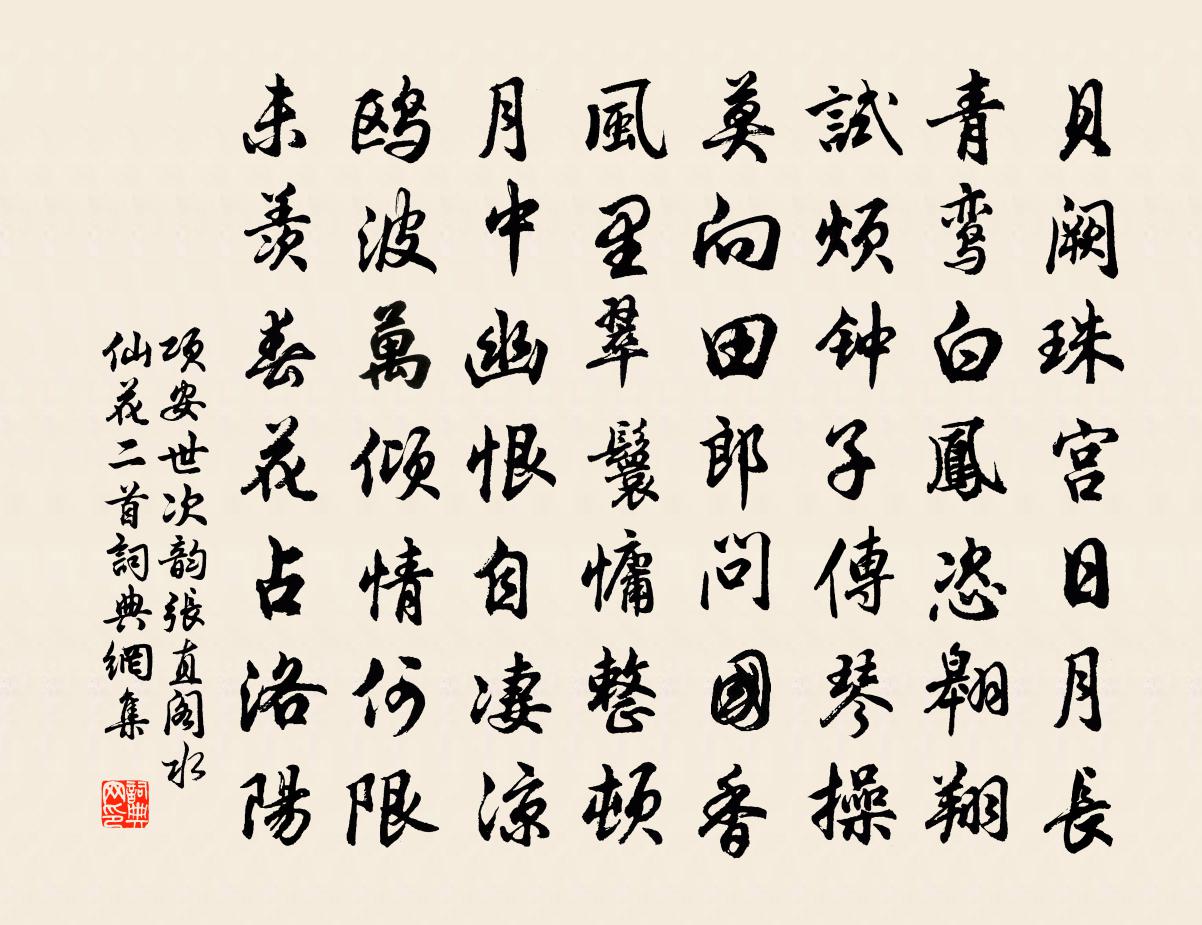 貝阙珠宫日月長
青鸾白鳳恣翱翔
試煩钟子傳琴操
莫向田郎問國香
風里翠鬟慵整頓
月中幽恨自凄凉
鸥波萬倾情何限
未羡春花占洛陽
项安世次韵張直阁水
仙花二首詞典網集
詞典
网印